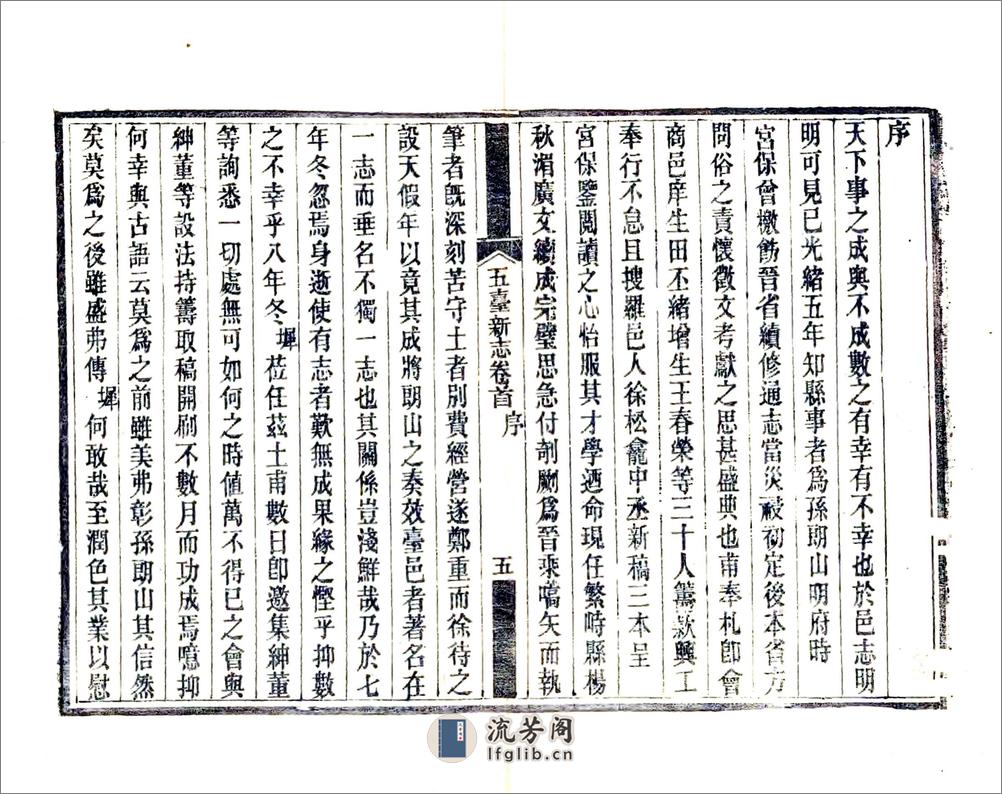 序
天下事之成與不成數之有幸有不幸也於邑志明
明可見已光緒五年知縣事者爲孫朗山明府時
宮保曾檄飭晉省續修通志當災祲初定後本省方
問俗之責懷徵文考獻之思甚盛典也甫奉札卽會
商邑庠生田丕緒增生王春榮等三十人籌款興工
奉行不怠且搜羅邑人徐松龕中丞新稿三本呈
宮保鑒閱讀之心怡服其才學迺命現任繁峙縣楊
秋湄廣文續成完璧思急付剞劂爲晉乘嚆矢而執
五臺新志卷首 序 五
筆者旣深刻苦守土者別費經營遂鄭重而徐待之
設天假年以竟其成將朗山之奏效臺邑者著名在
一志而垂名不獨一志也其關係豈淺鮮哉乃於七
年冬忽焉身逝使有志者歎無成果緣之慳乎抑數
之不幸乎八年冬墀莅任茲土甫數日卽邀集紳董
等詢悉一切處無可如何之時値萬不得已之會與
紳董等設法持籌取稿開刷不數月而功成焉噫抑
何幸與古語云莫爲之前雖美弗彰孫朗山其信然
矣莫爲之後雖盛弗傳墀何敢哉至潤色其業以慰
流芳阁
lfglib.cn